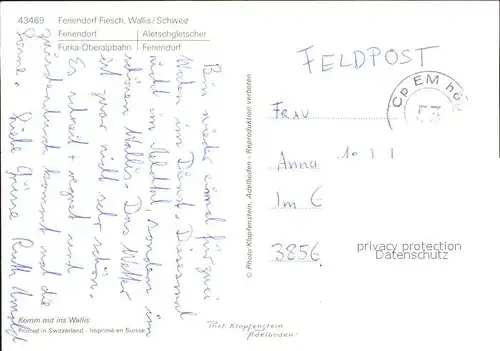 43469 Feriendorf Fiesch, Wallis/Schweiz
Feriendorf Aletschgletscher
Furka-Oberalpbahn Feriendorf
Bin wieder einmal für zwei
Wochen im Dienst. Diesesmal
nicht im Melchtal, sondern im
schönen Wallis. Das Wetter
ist zwar nicht sehr schön.
Es schneit + regnet und
zwischendurch kommt mal die
Sonne. Liebe Grüsse Ruth Arnold
Komm mit ins Wallis
Printed in Switzerland - Imprimé en Suisse
© Photo Klopfenstein, Adelboden - Reproduktion verboten
FELDPOST
Cp EM hôp
53
FRAU
Anna
Im G
3856
privacy protection
Datenschutz
Phot Klopfenstein
Adelboden-